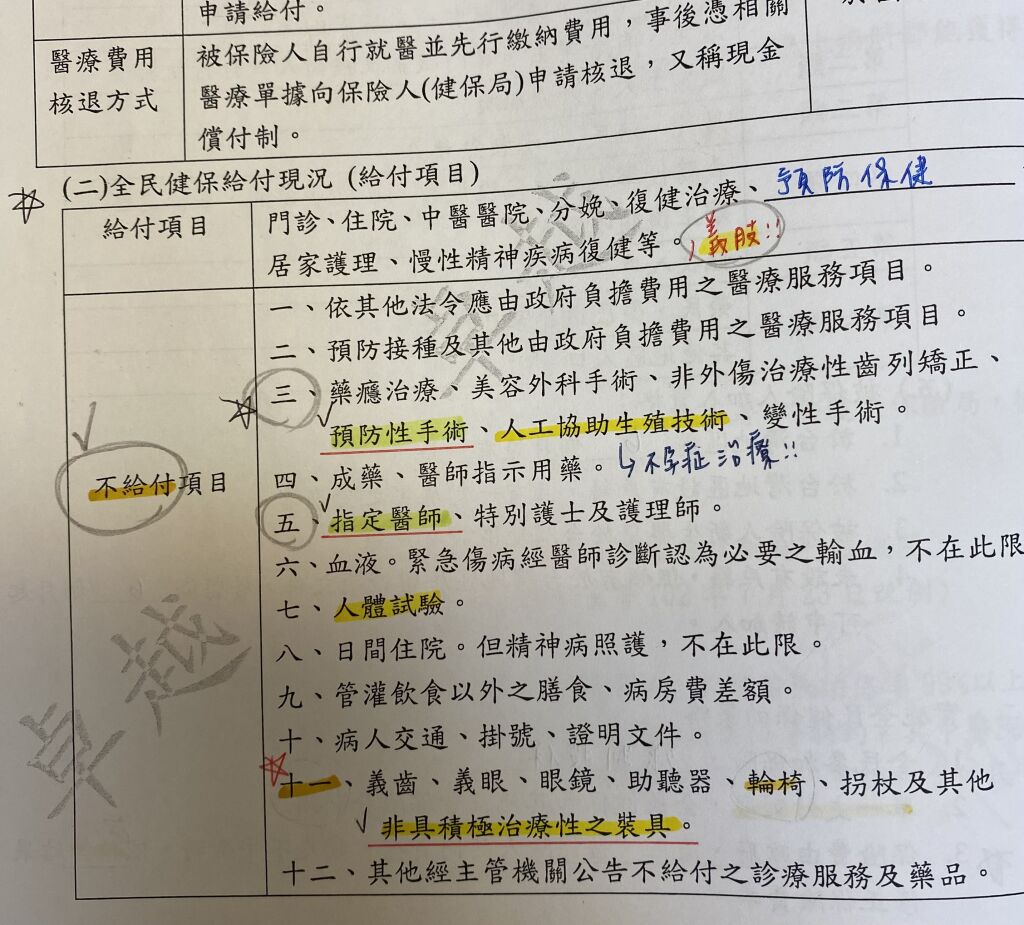 申請給付。
醫療費用
核退方式
被保險人自行就醫並先行繳納費用，事後憑相關
醫療單據向保險人(健保局)申請核退，又稱現金
償付制。
(二)全民健保給付現況（給付項目）
給付項目
門診、住院、中醫醫院、分娩、復健治療、預防保健
居家護理、慢性精神疾病復健等。、義肢!!
不給付項目
一、依其他法令應由政府負擔費用之醫療服務項目。
二、預防接種及其他由政府負擔費用之醫療服務項目。
三、藥癮治療、美容外科手術、非外傷治療性齒列矯正、
預防性手術、人工協助生殖技術、變性手術。
四、成藥、醫師指示用藥。
↳不孕症治療!!
五、指定醫師、特別護士及護理師。
六、血液。緊急傷病經醫師診斷認為必要之輸血，不在此限
七、人體試驗。
八、日間住院。但精神病照護，不在此限。
九、管灌飲食以外之膳食、病房費差額。
十、病人交通、掛號、證明文件。
十一、義齒、義眼、眼鏡、助聽器、輪椅、拐杖及其他
非具積極治療性之裝具。
十二、其他經主管機關公告不給付之診療服務及藥品。
卓越
卓越